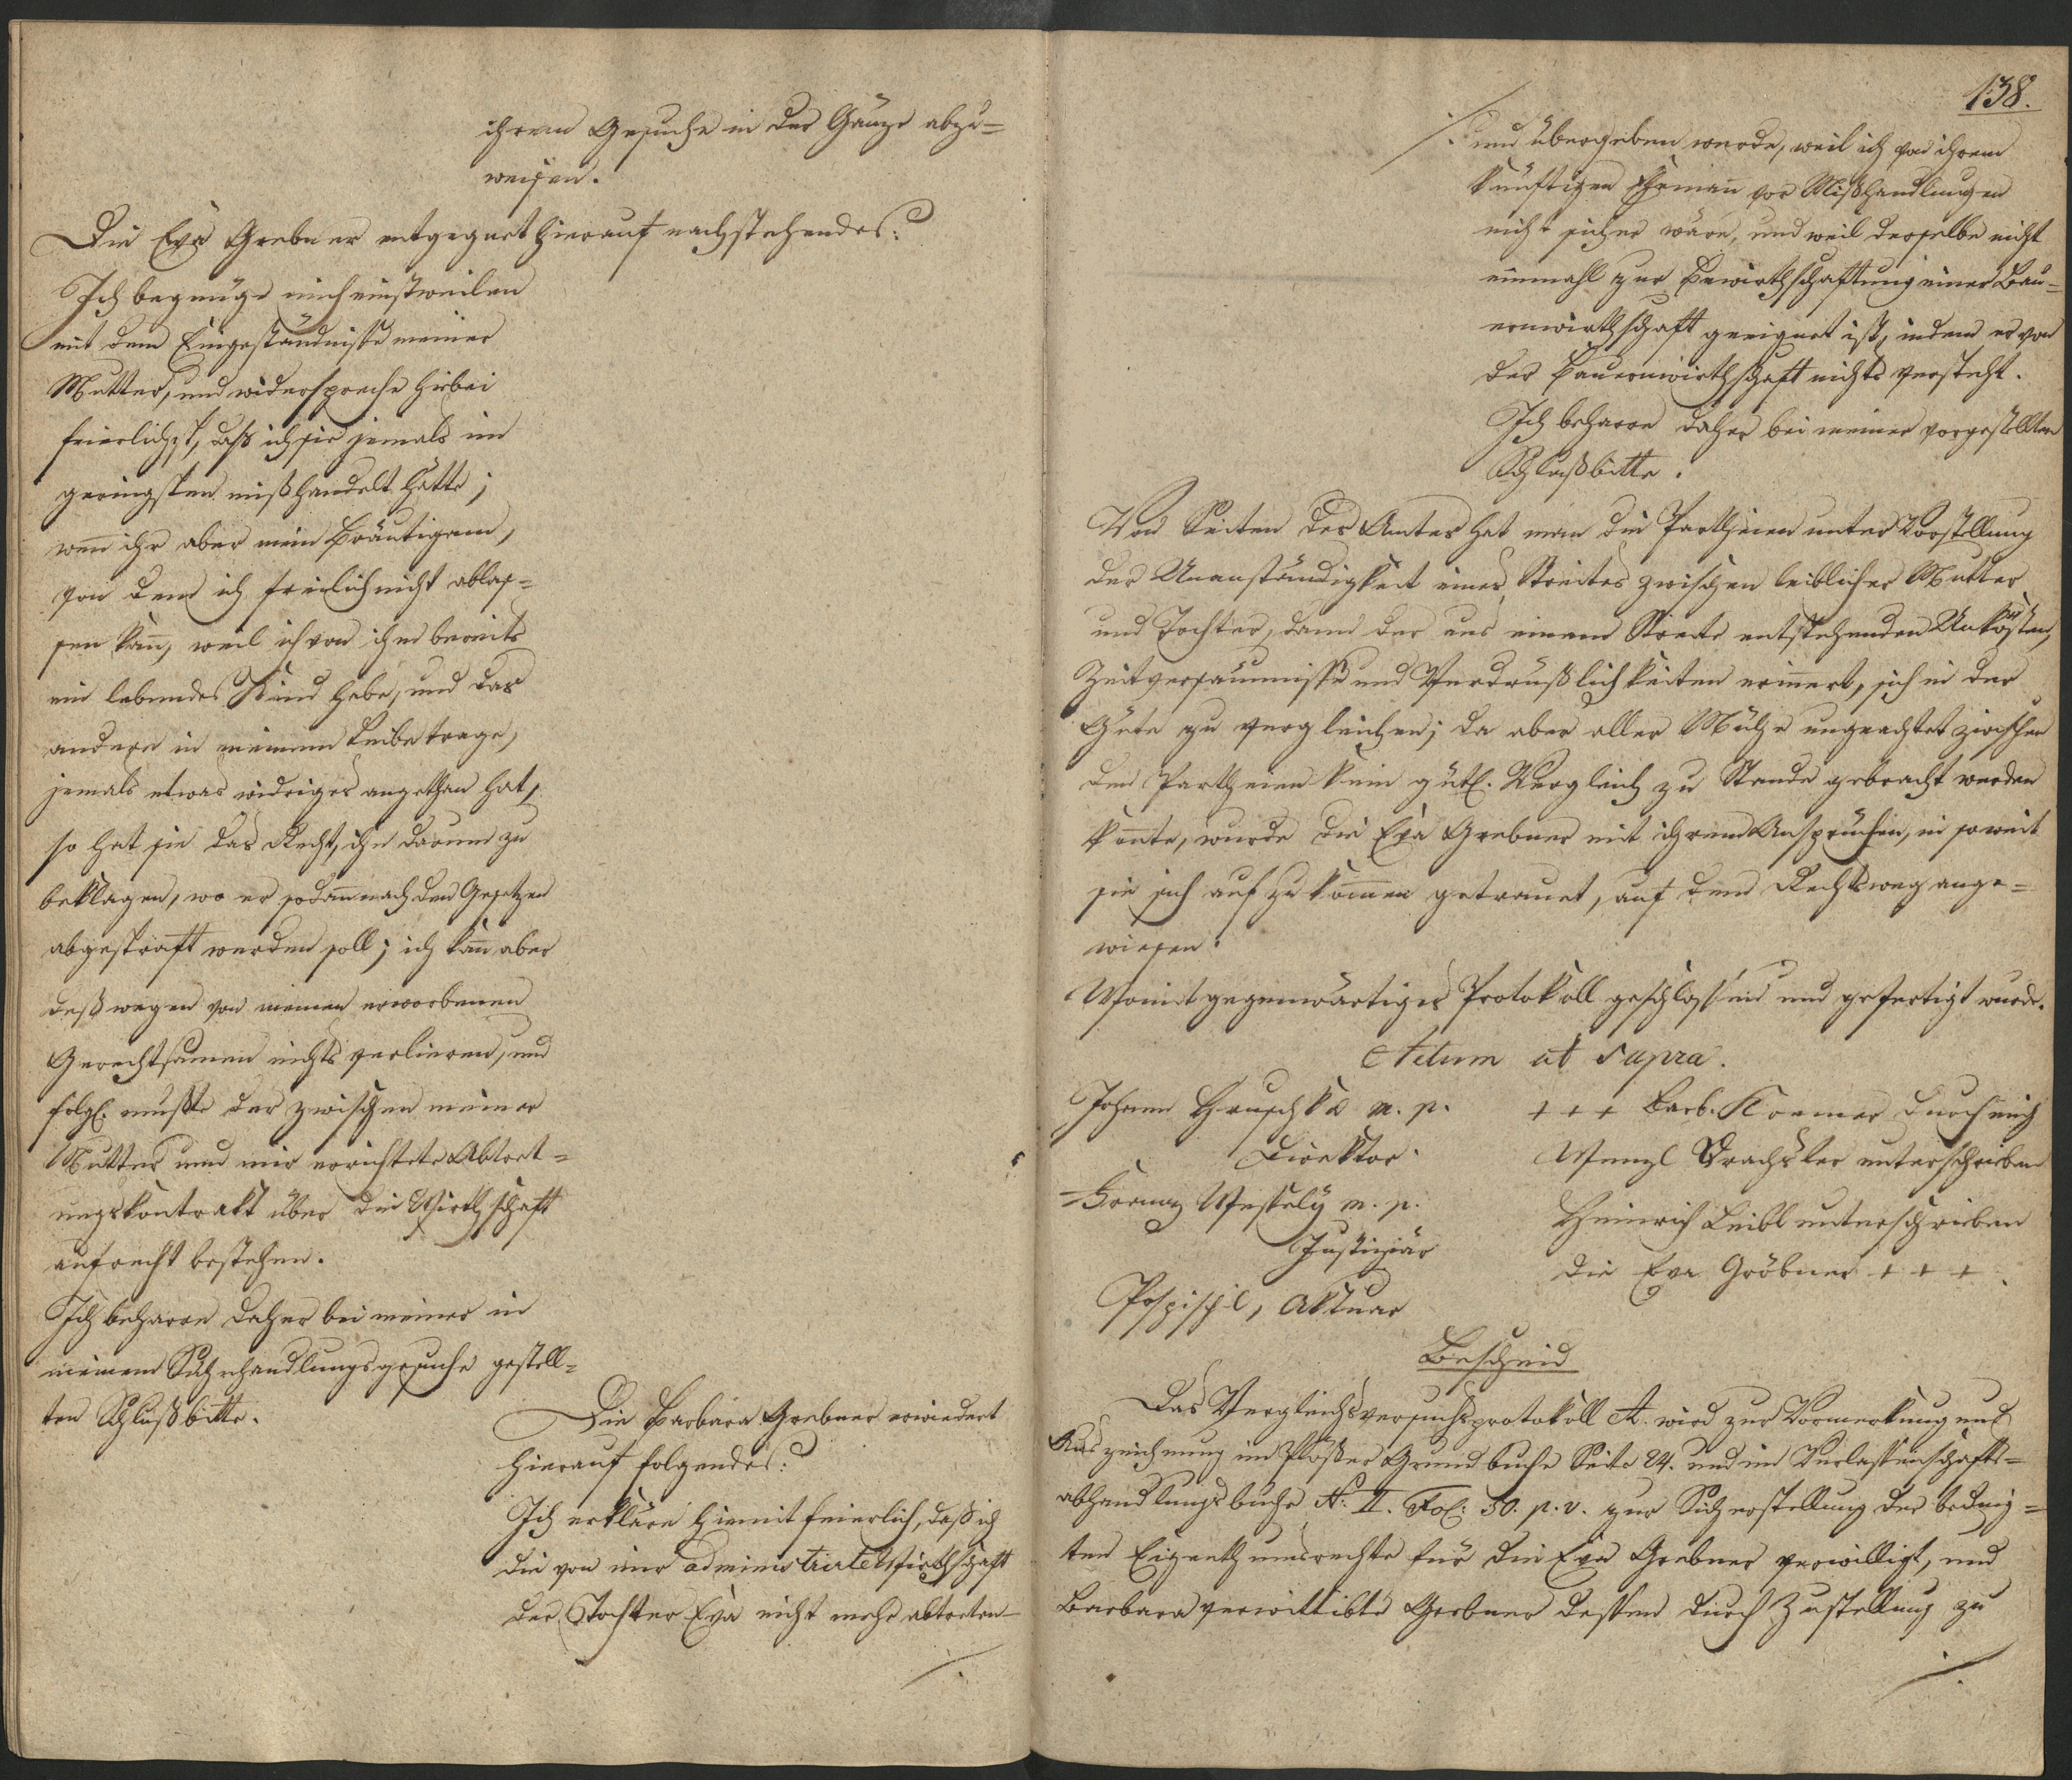 ihrem Gesuche in der Gänze abzu=
weisen.
Die Eva Grebner entgegnet hierauf nachstehendes:
Ich begnüge mich einstweilen
mit dem Eingeständnisse meiner
Mutter, und widerspreche hiebei
feierlichst, daß ich sie jemals im
geringsten mißhandelt hätte;
wen̄ ihr aber mein Bräutigam,
von dem ich freilich nicht ablas=
sen kan̄, weil ich von ihm bereits
ein lebendes Kind habe, und das
andere in meinem Leibe trage,
jemals etwas widriges angethan hat,
so hat sie das Recht, ihn darum zu
beklagen, wo er sodan̄ nach den Gesetzen
abgestraft werden soll; ich kan̄ aber
deßwegen von meinen erworbenen
Gerechtsamen nichts verlieren, und
folgl. mußte der zwischen meiner
Mutter und mir errichtete Abtret=
ungskontrakt über die Wirthschaft
aufrecht bestehen.
Ich beharre daher bei meiner in
meinem Rechtshandlungsgesuche gestell=
ten Schlußbitte.
Die Barbara Grebner erwiedert
hierauf folgendes:
Ich erkläre hiemit feierlich, daß ich
die von mir administrirte Wirthschaft
der Tochter Eva nicht mehr abtreten
./.
138.
./. und übergeben werde, weil ich von ihrem
künftigen Eheman̄ vor Mißhandlungen
nicht sicher wäre, und weil derselbe nicht
einmahl zur Bewirthschaftung einer Bau=
ernwirthschaft geeignet ist, indem er von
der Bauernwirthschaft nichts versteht.
Ich beharre daher bei meiner vorgestellten
Schlußbitte.
Von Seiten des Amtes hat man die Partheien unter Vorstellung
der Unanständigkeit eines Streites zwischen leiblicher Mutter
und Tochter, dann der aus einem Streite entstehenden Unkosten,
Zeitversäumnisse und Verdrüßlichkeiten erin̄ert, sich in der
Güte zu vergleichen; da aber aller Mühe ungeachtet zwischen
den Partheien kein gütl. Vergleich zu Stande gebracht werden
kon̄te, wurde die Eva Grebner mit ihren Ansprüchen, in soweit
sie sich aufzukom̄en getrauet, auf den Rechtsweg ange=
wiesen.
Womit gegenwärtiges Protokoll geschlossen und gefertigt wurde.
Actum ut supra.
Johann Hruschka m. p.
Direktor.
Franz Wesselÿ m. p.
Justiziär
Pospischil, Aktuar
+ + + Barb. Kremer durch mich
Wenzl Drachsler unterschrieben
Heinrich Leibl unterschrieben
die Eva Gröbner + + +.
Bescheid
Das Vergleichsversuchsprotokoll A. wird zur Vormerkung und
Auszeichnung im Ploßer Grundbuche Seite 24. und im Verlassenschafts=
abhandlungsbuche N: II. Fol: 50. p. v. zur Sicherstellung der beding=
ten Eigenthumsrechte für die Eva Grebner verwilligt, und
Barbara verwittibte Grebner dessen durch Zustellung zu
./.